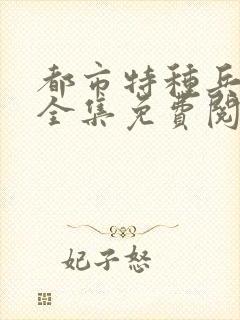 都市特种兵
全集免費閱
妃子怒